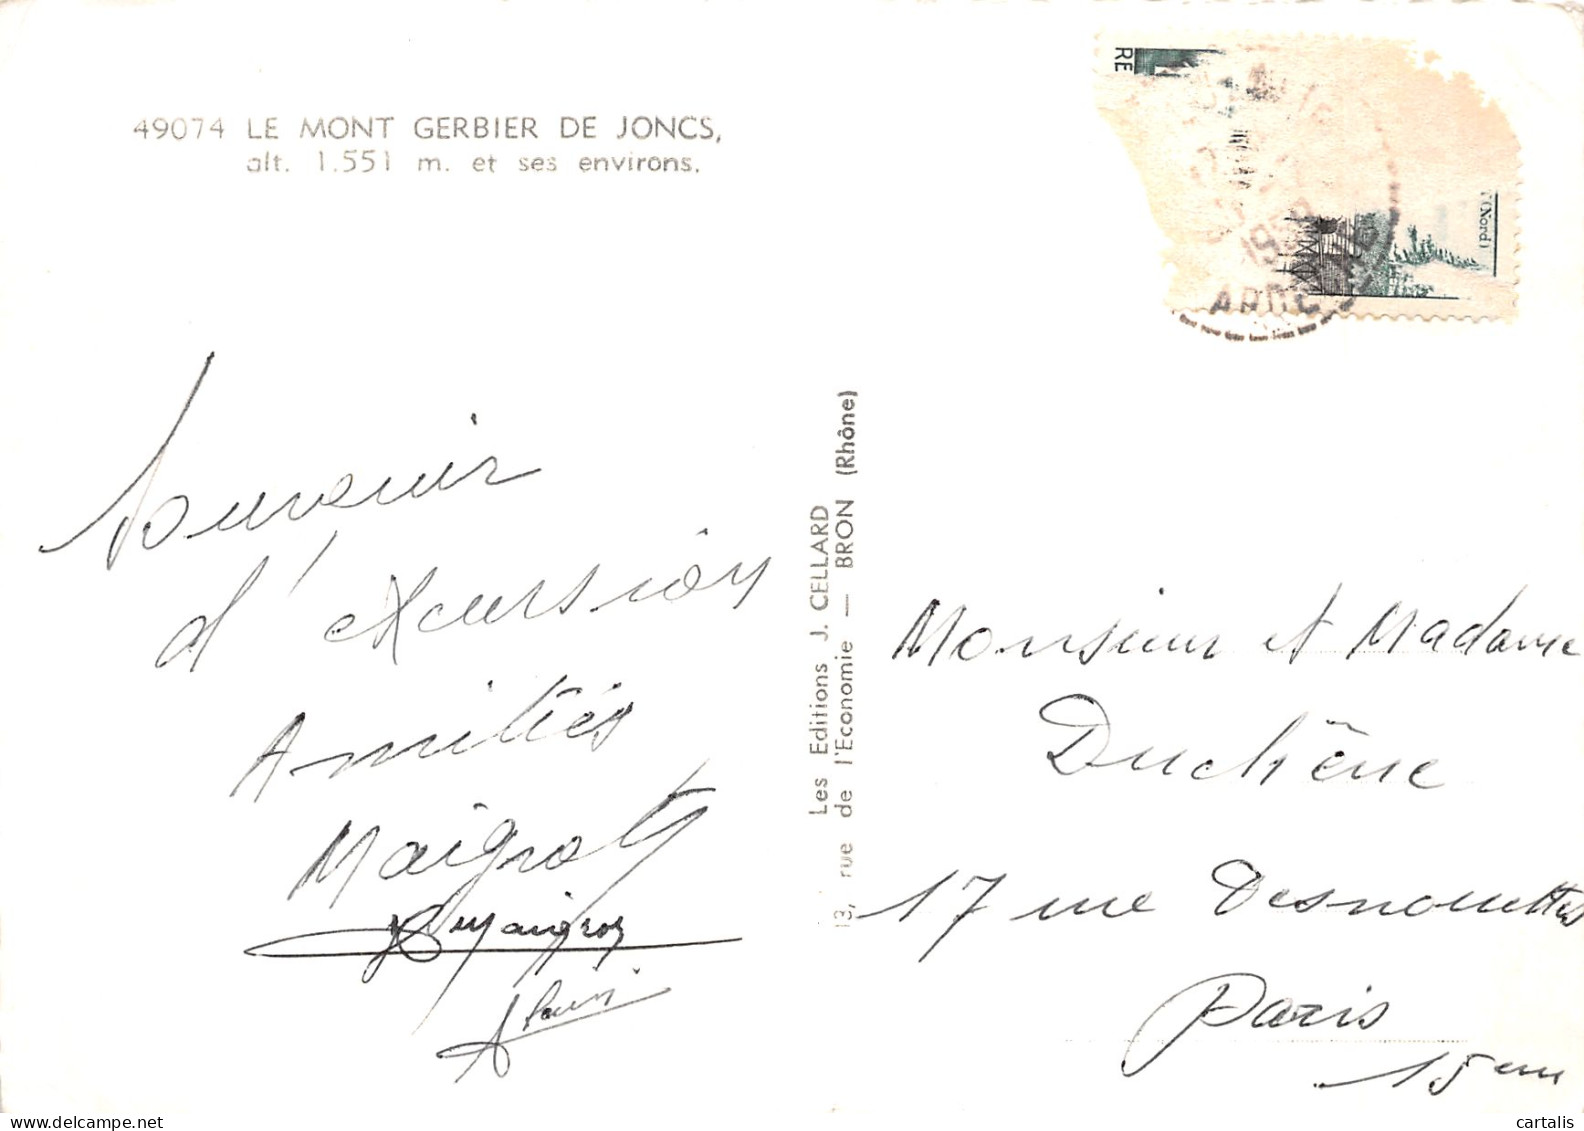 49074 LE MONT GERBIER DE JONCS,
alt. 1.551 m. et ses environs.
RE
(Nord)
ARDÈ
Souvenir
d'excursion
Amitiés
Les Editions J. CELLARD
13, rue de l'Economie — BRON (Rhône)
Monsieur et Madame
Duchêne
17 rue Desnouettes
Paris
15em
cartalis